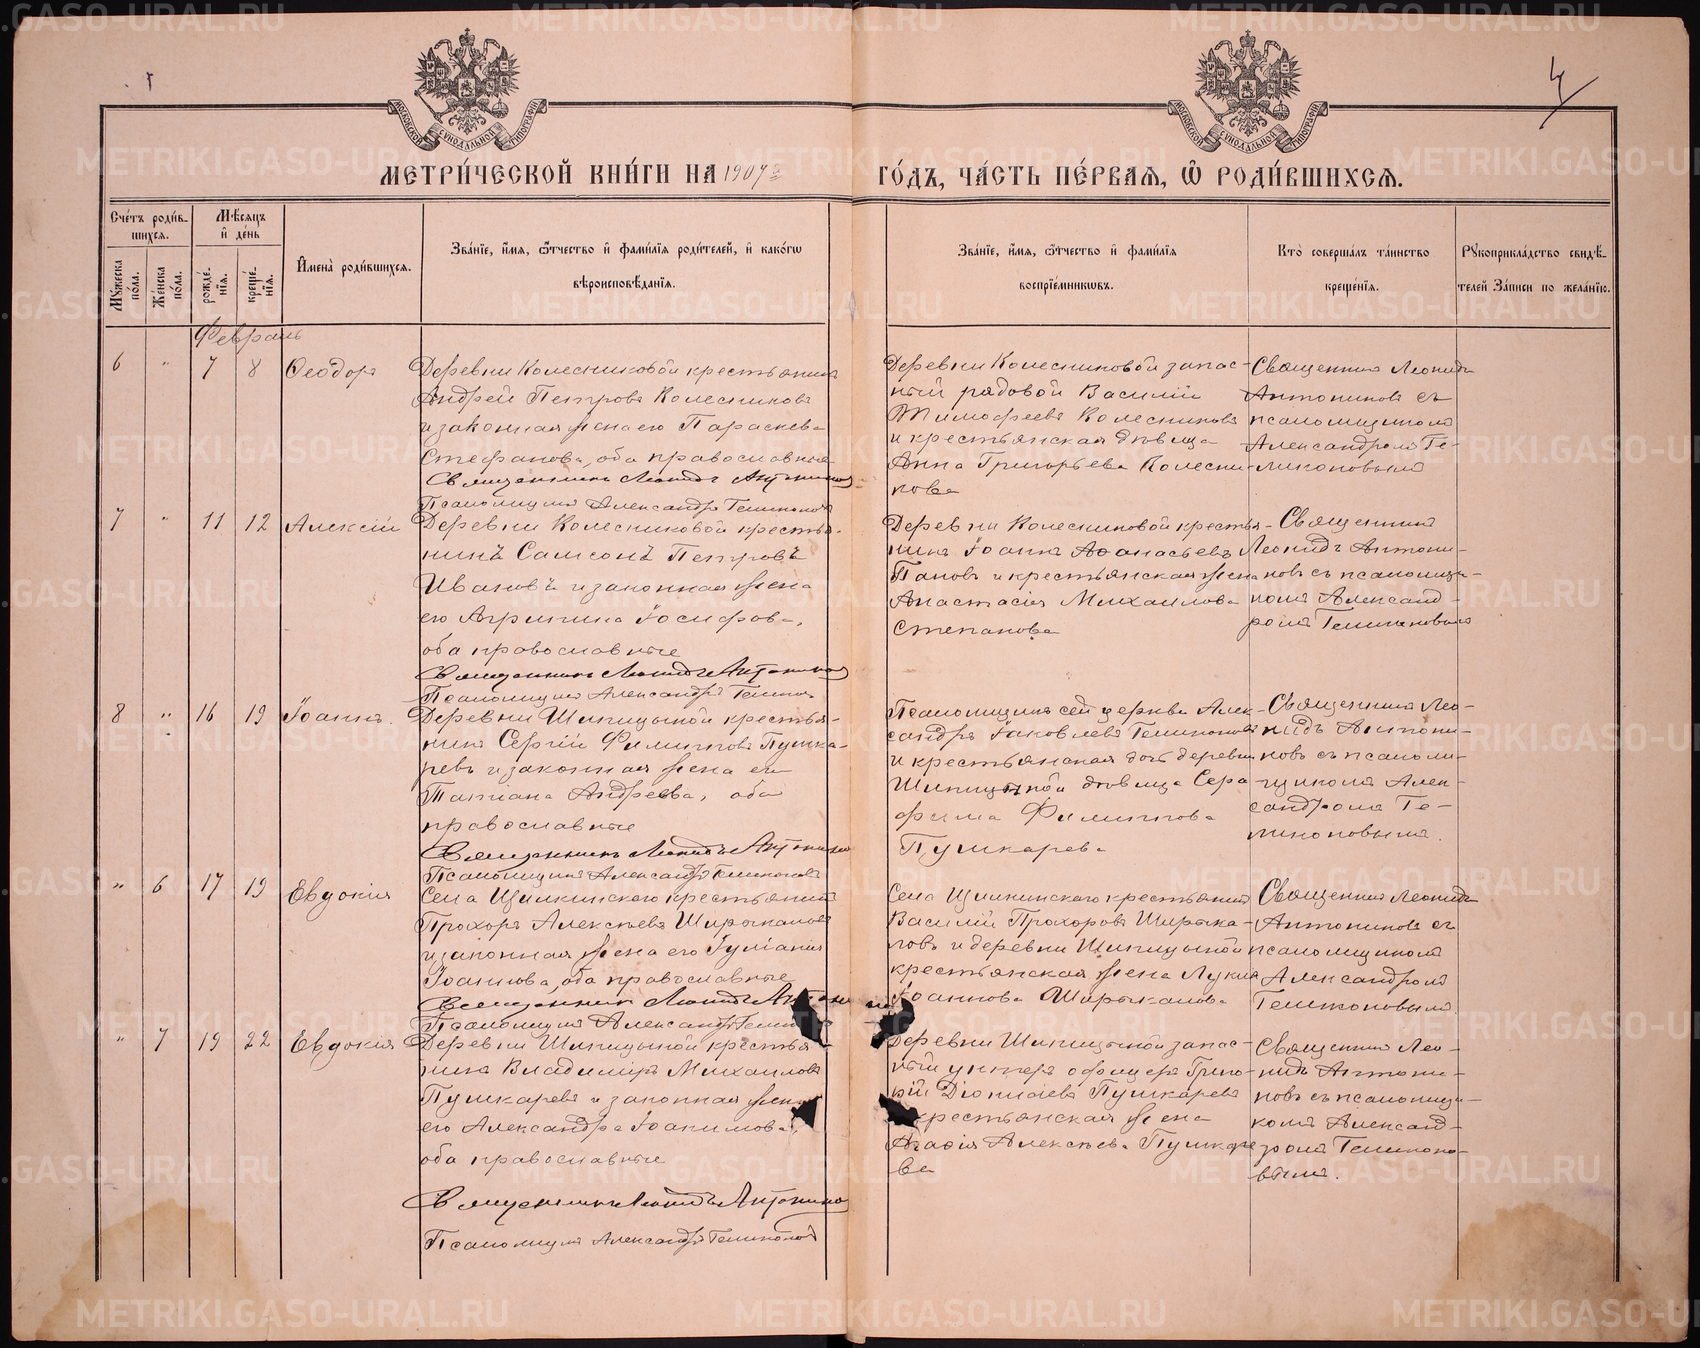 4
МЕТРИ́ЧЕСКОЙ КНИ́ГИ НА 1907 г
ГО́ДЪ, ЧА́СТЬ ПЕ́РВАЯ, Ѿ РОДИ́ВШИХСЯ.
Сче́тъ роди́вшихся.
Мѣ́сяцъ и҆ де́нь
И҆мена̀ роди́вшихся.
Зва́нїе, и҆́мя, ѻ҆́тчество и҆ фами́лїя роди́телей, и҆ како́гѡ
вѣроисповѣ́данїя.
Зва́нїе, и҆́мя, ѻ҆́тчество и҆ фами́лїя
воспрїе́мникѡвъ.
Кто̀ соверша́лъ та́инство
креще́нїя.
Рꙋкоприкла́дство свидѣ́-
телей за́писи по жела́нїю.
Мꙋ́жеска по́ла.
Же́нска по́ла.
рожде́нїя.
креще́нїя.
Февраль
6 " 7 8 Ѳеодоръ
Деревни Колесниковой крестьянинъ
Андрей Петровъ Колесниковъ
и законная жена его Параскева
Стефанова, оба православные
Священникъ Леонидъ Антониновъ
Псаломщикъ Александръ Темноковъ
Деревни Колесниковой запас-
ный рядовой Василий
Тимофеевъ Колесниковъ
и крестьянская дѣвица
Анна Григорьева Колесни-
кова
Священникъ Леонидъ
Антониновъ съ
псаломщикомъ
Александромъ Те-
7 " 11 12 Алексій
Деревни Колесниковой крестья-
нинъ Самсонъ Петровъ
Ивановъ и законная жена
его Агрипина Іосифова,
оба православные
Священникъ Леонидъ Антониновъ
Псаломщикъ Александръ
Деревни Колесниковой крестья-
нинъ Іоаннъ Аѳанасьевъ
Пановъ и крестьянская жена
Анастасія Михаилова
Степанова
Священникъ
Леонидъ Антони-
новъ съ псаломщи-
комъ Александ-
ромъ
8 " 16 19 Іоаннъ.
Деревни Шипицыной крестья-
нинъ Сергій Филипповъ Пушка-
ревъ и законная жена его
Татіана Андреева, оба
православные
Священникъ Леонидъ Антониновъ
Псаломщикъ Александръ
Псаломщикъ сей церкви Алек-
сандръ Іаковлевъ
и крестьянская дочь деревни
Шипицыной дѣвица Сера
фима Филиппова
Пушкарева
Священникъ Лео-
нидъ Антони-
новъ съ псалом-
щикомъ Алек-
сандромъ Те-
" 6 17 19 Евдокія
Села крестьянинъ
Прохоръ Алексѣевъ Ширыкаловъ
и законная жена его Іуліанія
Іоаннова, оба православные
Священникъ Леонидъ
Псаломщикъ Александръ
Села крестьянинъ
Василій Прохоровъ Ширыка-
ловъ и деревни Шипицыной
крестьянская жена Лукія
Іоаннова Ширыкалова
Священникъ Леонидъ
Антониновъ съ
псаломщикомъ
Александромъ
" 7 19 22 Евдокія
Деревни Шипицыной крестья-
нинъ Владиміръ Михаиловъ
Пушкаревъ и законная жена
его Александра Іоакимова,
оба православные
Священникъ Леонидъ Антониновъ
Псаломщикъ Александръ
Деревни Шипицыной запас-
ный унтеръ офицеръ Григо-
рій Діонисіевъ Пушкаревъ
крестьянская жена
Агафія Алексѣева Пушкаре
ва
Священникъ Лео-
нидъ Антони-
новъ съ псаломщи-
комъ Александ-
ромъ
METRIKI.GASO-URAL.RU